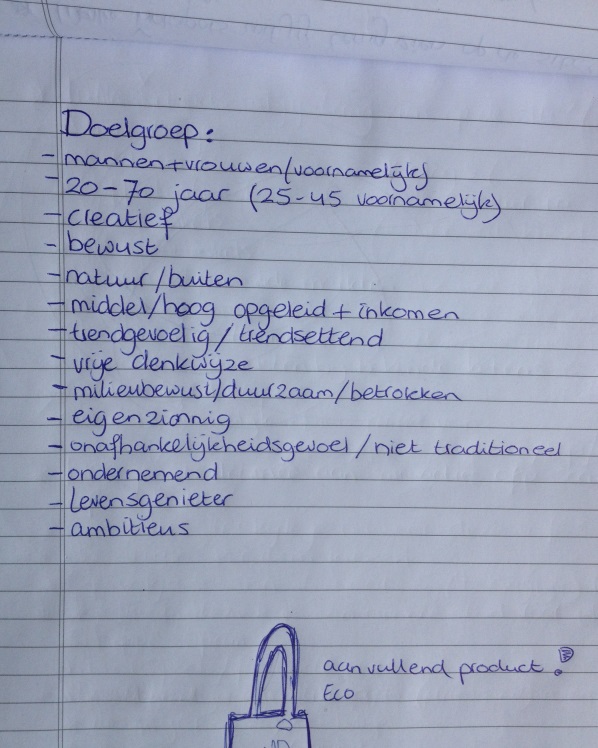 Doelgroep:
- mannen+vrouwen(voornamelijk)
- 20-70 jaar (25-45 voornamelijk)
- creatief
- bewust
- natuur/buiten
- middel/hoog opgeleid + inkomen
- trendgevoelig/trendsettend
- vrije denkwijze
- milieubewust/duurzaam/betrokken
- eigenzinnig
- onafhankelijkheidsgevoel/niet traditioneel
- ondernemend
- levensgenieter
- ambitieus
aanvullend product?
Eco